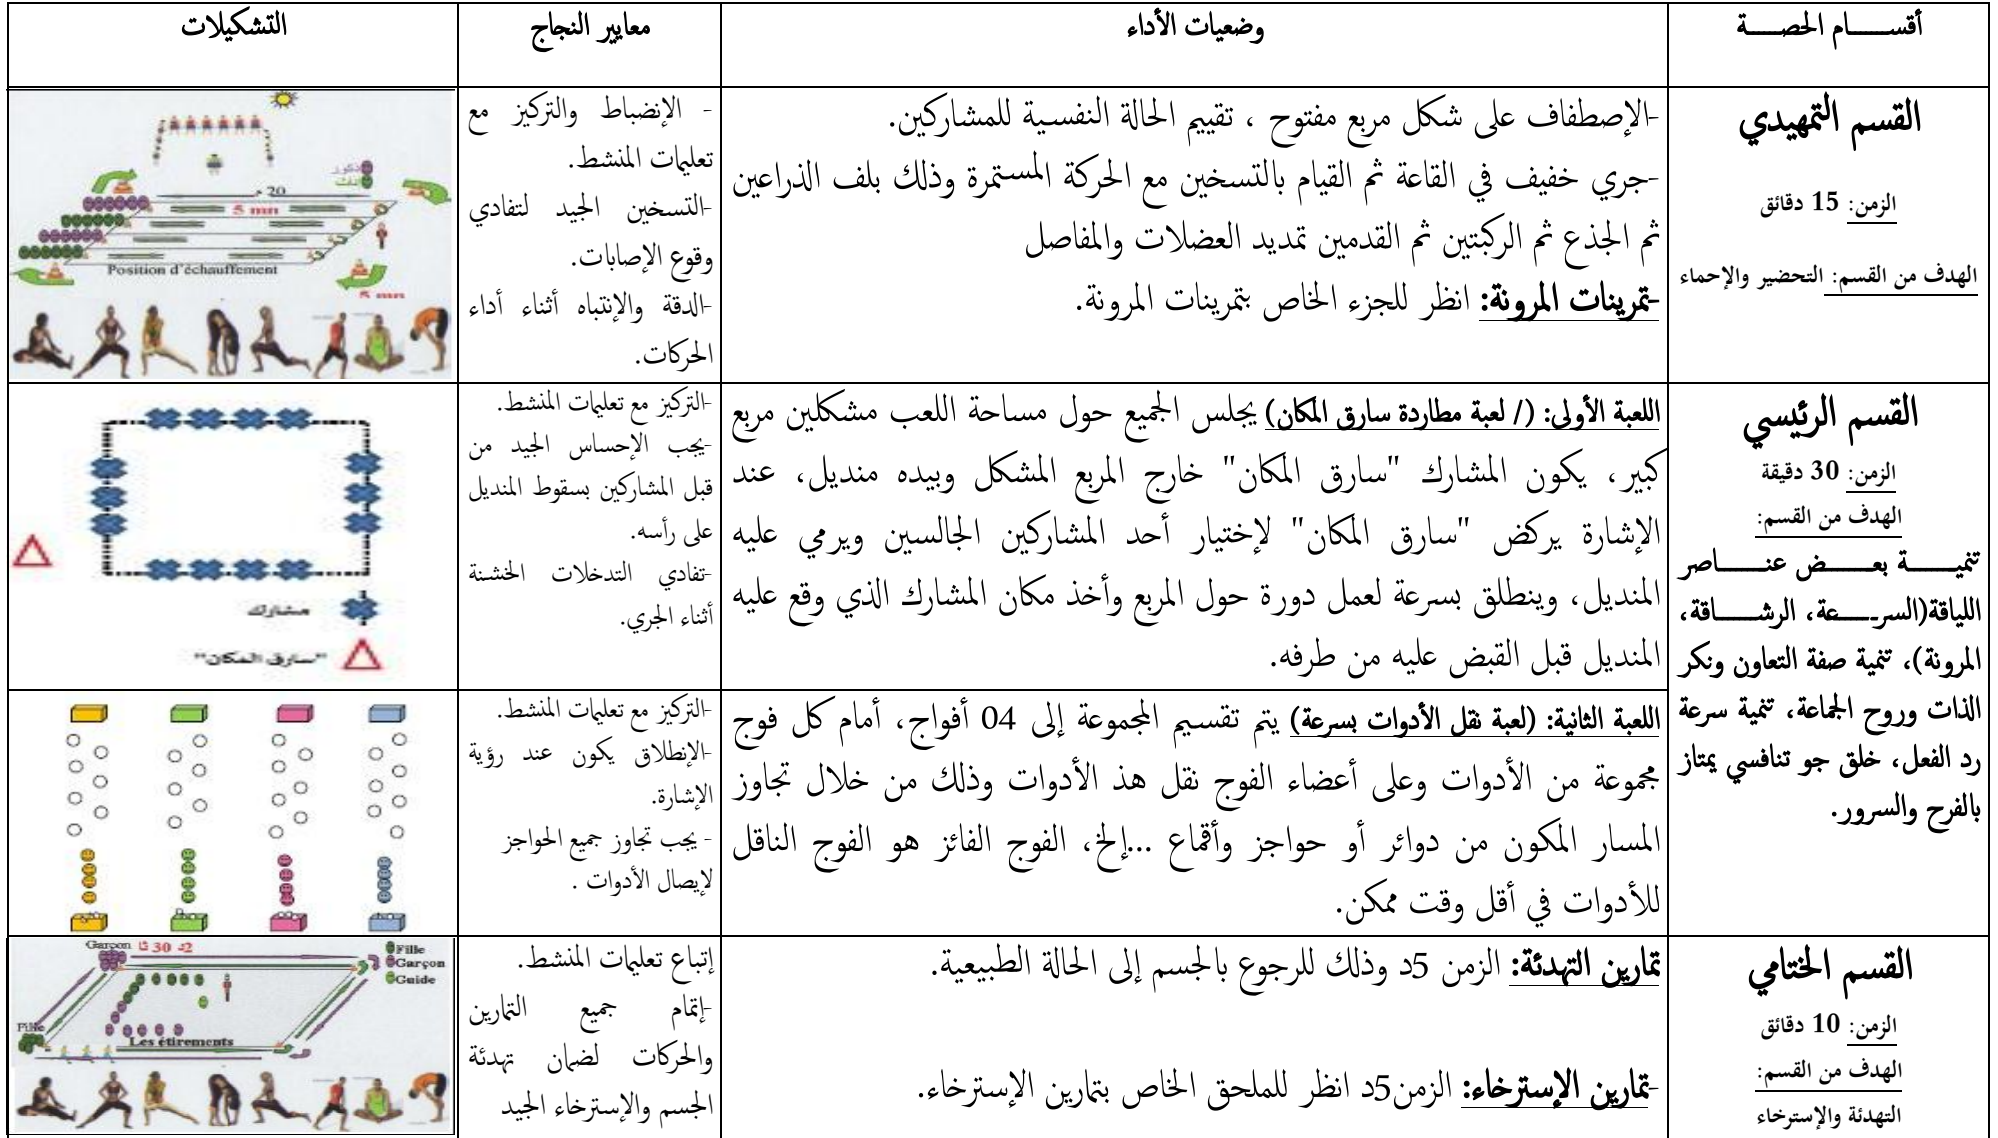 أقســـــام الحصـــــة
وضعيات الأداء
معايير النجاح
التشكيلات
القسم التمهيدي
الزمن: 15 دقائق
الهدف من القسم: التحضير والإحماء
-الإصطفاف على شكل مربع مفتوح ، تقييم الحالة النفسية للمشاركين.
-جري خفيف في القاعة ثم القيام بالتسخين مع الحركة المستمرة وذلك بلف الذراعين
ثم الجذع ثم الركبتين ثم القدمين تمديد العضلات والمفاصل
-تمرينات المرونة: انظر للجزء الخاص بتمرينات المرونة.
- الإنضباط والتركيز مع
تعليمات المنشط.
-التسخين الجيد لتفادي
وقوع الإصابات.
-الدقة والإنتباه أثناء أداء
الحركات.
ذكور
20 م
5 mn
Position d'échauffement
5 mn
القسم الرئيسي
الزمن: 30 دقيقة
الهدف من القسم:
تنميـــــة بعـــــض عنـــــاصر
اللياقة(السرـــــعة، الرشـــــاقة،
المرونة)، تنمية صفة التعاون ونكر
الذات وروح الجماعة، تنمية سرعة
رد الفعل، خلق جو تنافسي يمتاز
بالفرح والسرور.
اللعبة الأولى: (/ لعبة مطاردة سارق المكان) يجلس الجميع حول مساحة اللعب مشكلين مربع
كبير، يكون المشارك "سارق المكان" خارج المربع المشكل وبيده منديل، عند
الإشارة يركض "سارق المكان" لإختيار أحد المشاركين الجالسين ويرمي عليه
المنديل، وينطلق بسرعة لعمل دورة حول المربع وأخذ مكان المشارك الذي وقع عليه
المنديل قبل القبض عليه من طرفه.
-التركيز مع تعليمات المنشط.
-يجب الإحساس الجيد من
قبل المشاركين بسقوط المنديل
على رأسه.
-تفادي التدخلات الخشنة
أثناء الجري.
مشارك
"سارق المكان"
اللعبة الثانية: (لعبة نقل الأدوات بسرعة) يتم تقسيم المجموعة إلى 04 أفواج، أمام كل فوج
مجموعة من الأدوات وعلى أعضاء الفوج نقل هذ الأدوات وذلك من خلال تجاوز
المسار المكون من دوائر أو حواجز وأقماع ...إلخ، الفوج الفائز هو الفوج الناقل
للأدوات في أقل وقت ممكن.
-التركيز مع تعليمات المنشط.
-الإنطلاق يكون عند رؤية
الإشارة.
- يجب تجاوز جميع الحواجز
لإيصال الأدوات .
القسم الختامي
الزمن: 10 دقائق
الهدف من القسم:
التهدئة والإسترخاء
تمارين التهدئة: الزمن 5د وذلك للرجوع بالجسم إلى الحالة الطبيعية.
-تمارين الإسترخاء: الزمن5د انظر للملحق الخاص بتمارين الإسترخاء.
إتباع تعليمات المنشط.
-إتمام جميع التمارين
والحركات لضمان تهدئة
الجسم والإسترخاء الجيد
Garçon
Fille
Garçon
Guide
Fille
Les étirements